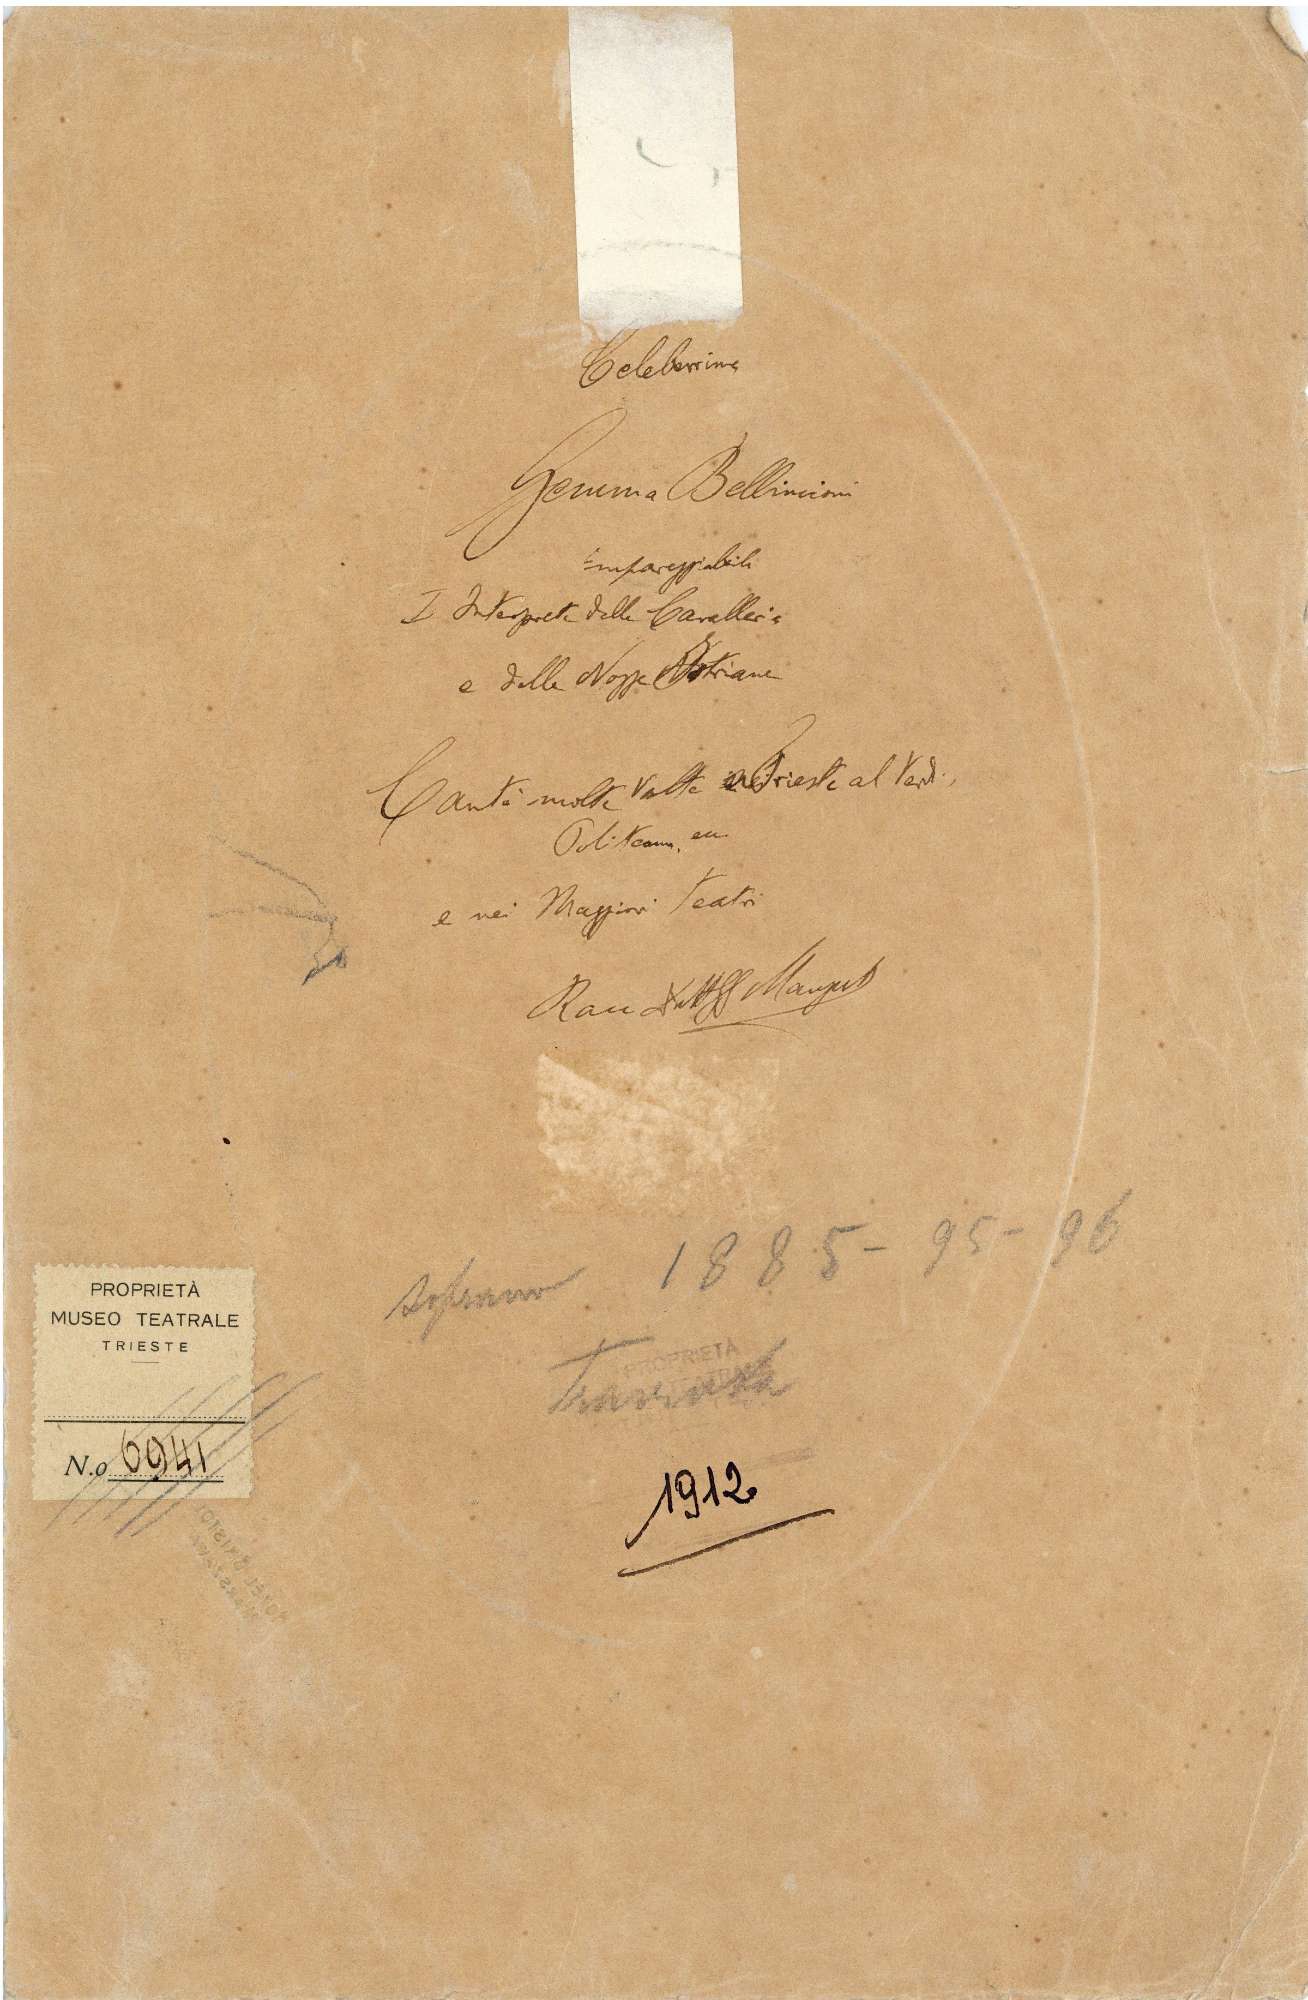 Celeberrima
Gemma Bellincioni
impareggiabile
I Interprete della Cavalleria
e delle Nozze Istriane
Cantò molte volte a Trieste al Verdi,
Politeama, ecc.
e nei Maggiori Teatri
soprano 1885 - 95 - 96
Traviata
PROPRIETÀ
1912
PROPRIETÀ
MUSEO TEATRALE
TRIESTE
N.o 6941